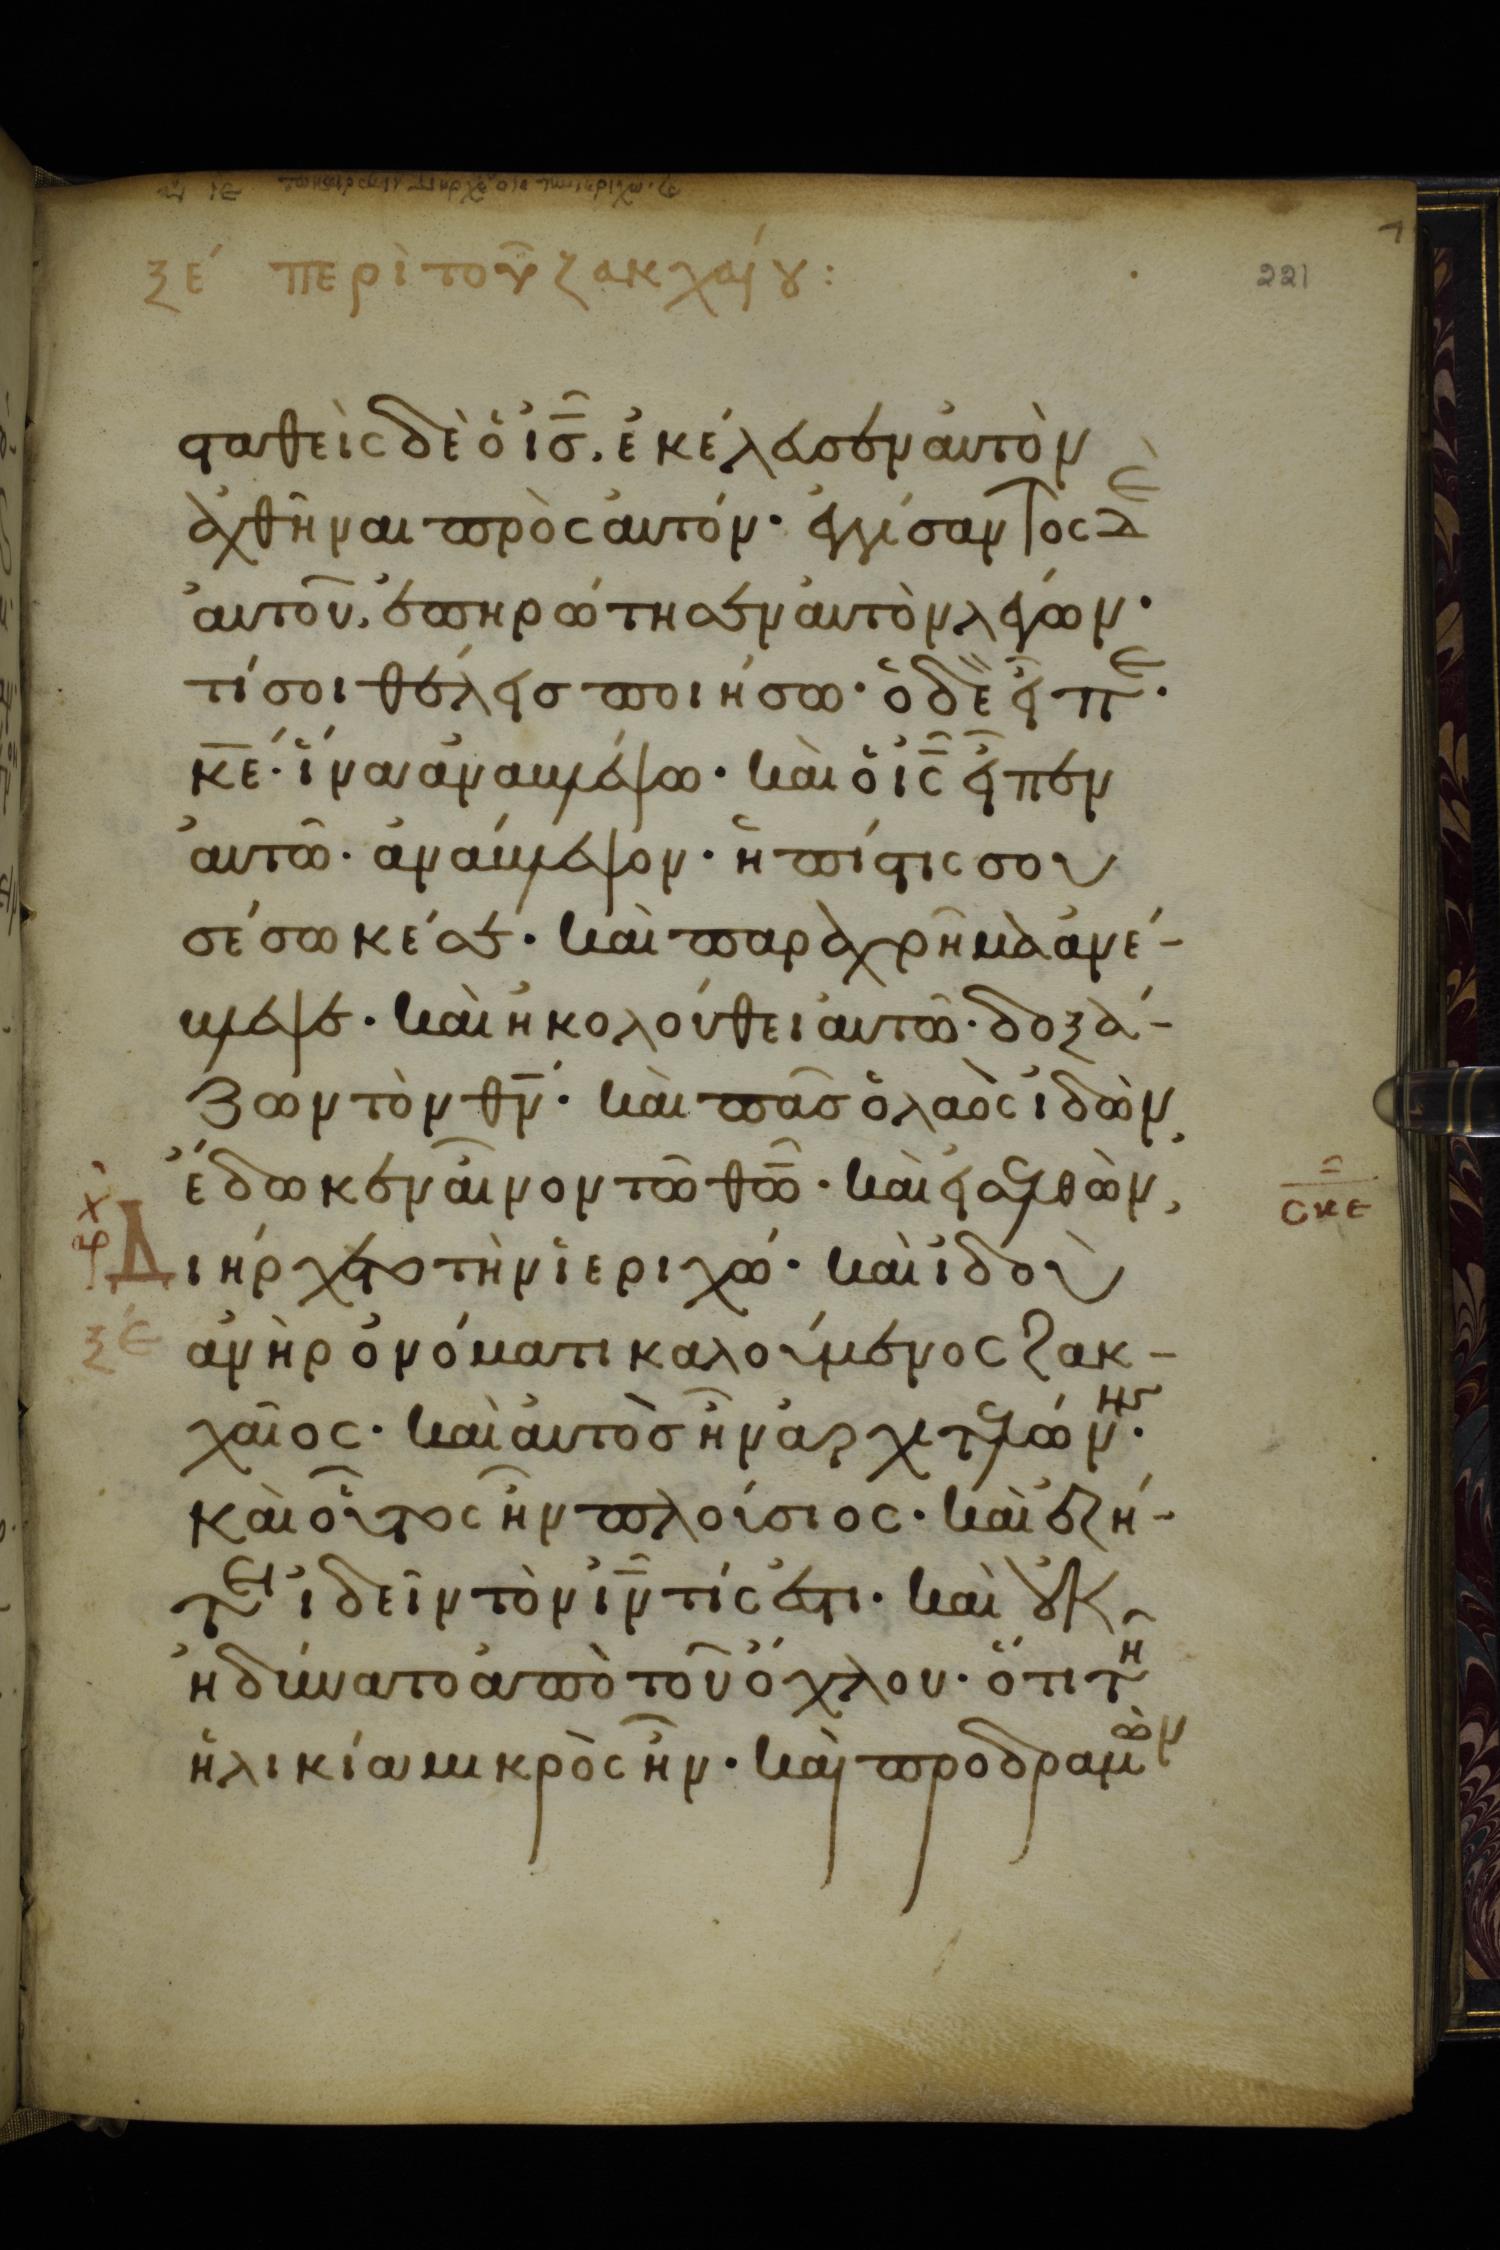 ξε΄ περὶ τοῦ ζακχαίου:
221
σταθεὶς δὲ ὁ ἰς̄. ἐκέλευσεν αὐτὸν
ἀχθῆναι πρὸς αὐτόν· ἐγγίσαντος δὲ
αὐτοῦ, ἐπηρώτησεν αὐτὸν λέγων·
τί σοι θέλεις ποιήσω· ὁ δὲ εἶπε·
κ̄ε̄· ἵνα ἀναβλέψω· καὶ ὁ ἰς̄ εἶπεν
αὐτῶ· ἀνάβλεψον· ἡ πίστις σου
σέσωκέ σε· καὶ παραχρῆμα ἀνέ-
βλεψε· καὶ ἠκολούθει αὐτῶ· δοξά-
ζων τὸν θ̄ν̄· καὶ πᾶσ ὁ λαὸς ἰδὼν,
ἔδωκεν αἶνον τῶ θ̄ω̄· καὶ εἰσελθὼν,
Διήρχετο τὴν ἱεριχώ· καὶ ἰδοὺ
ξε
σκε
ἀνὴρ ὀνόματι καλούμενος ζακ-
χαῖος· καὶ αὐτὸσ ἦν ἀρχιτελώνης·
καὶ οὗτος ἦν πλούσιος· καὶ ἐζή-
τει ἰδεῖν τὸν ἰν̄ τίς ἐστι· καὶ οὐκ
ἠδύνατο ἀπὸ τοῦ ὄχλου· ὅτι τῆ
ἡλικία μικρὸς ἦν· καὶ προδραμὼν